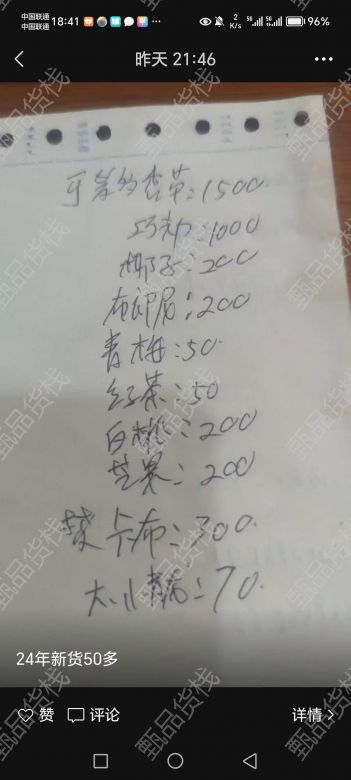 中国联通
中国联通
18:41
2 K/s
5G
5G
96%
昨天 21:46
可爱的香草:1500.
巧克力:1000
椰子:200
布朗尼:200
青梅:50.
红茶:50
白桃:200
芒果:200
提卡布:300.
大小青 :70.
24年新货50多
赞
评论
详情
甄品货栈